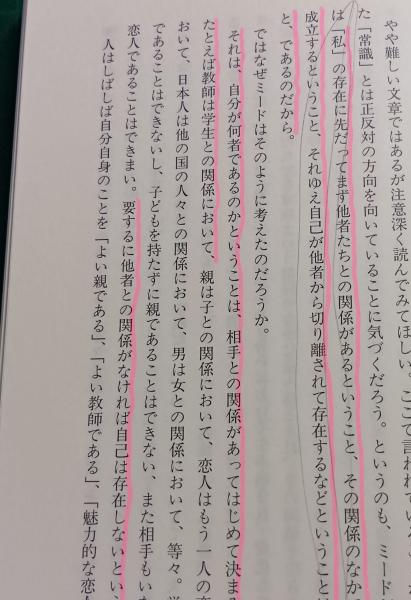 やや難しい文章ではあるが注意深く読んでみてほしい。ここで言われている
た「常識」とは正反対の方向を向いていることに気づくだろう。というのも、ミード
は「私」の存在に先だってまず他者たちとの関係があるということ、その関係のなかで
成立するということ、それゆえ自己が他者から切り離されて存在するなどということ
と、であるのだから。
ではなぜミードはそのように考えたのだろうか。
それは、自分が何者であるのかということは、相手との関係があってはじめて決ま
たとえば教師は学生との関係において、親は子との関係において、恋人はもう一人の恋
おいて、日本人は他の国の人々との関係において、男は女との関係において、等々。
であることはできないし、子どもを持たずに親であることはできない、また相手もい
恋人であることはできまい。要するに他者との関係がなければ自己は存在しないとい
人はしばしば自分自身のことを「よい親である」、「よい教師である」、「魅力的な恋